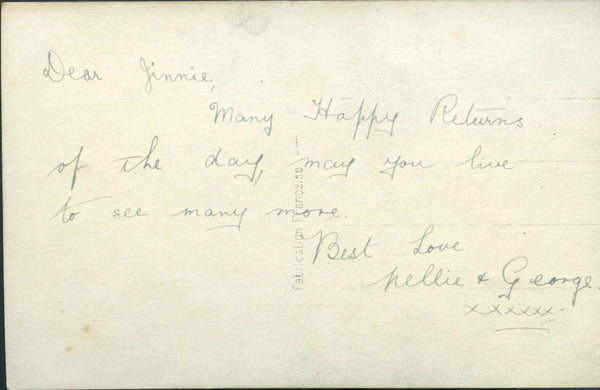 Dear Jinnie,
Many Happy Returns
of the day, may you live
to see many more.
Best Love
Nellie & George.
xxxxxx.
Fabrication Française